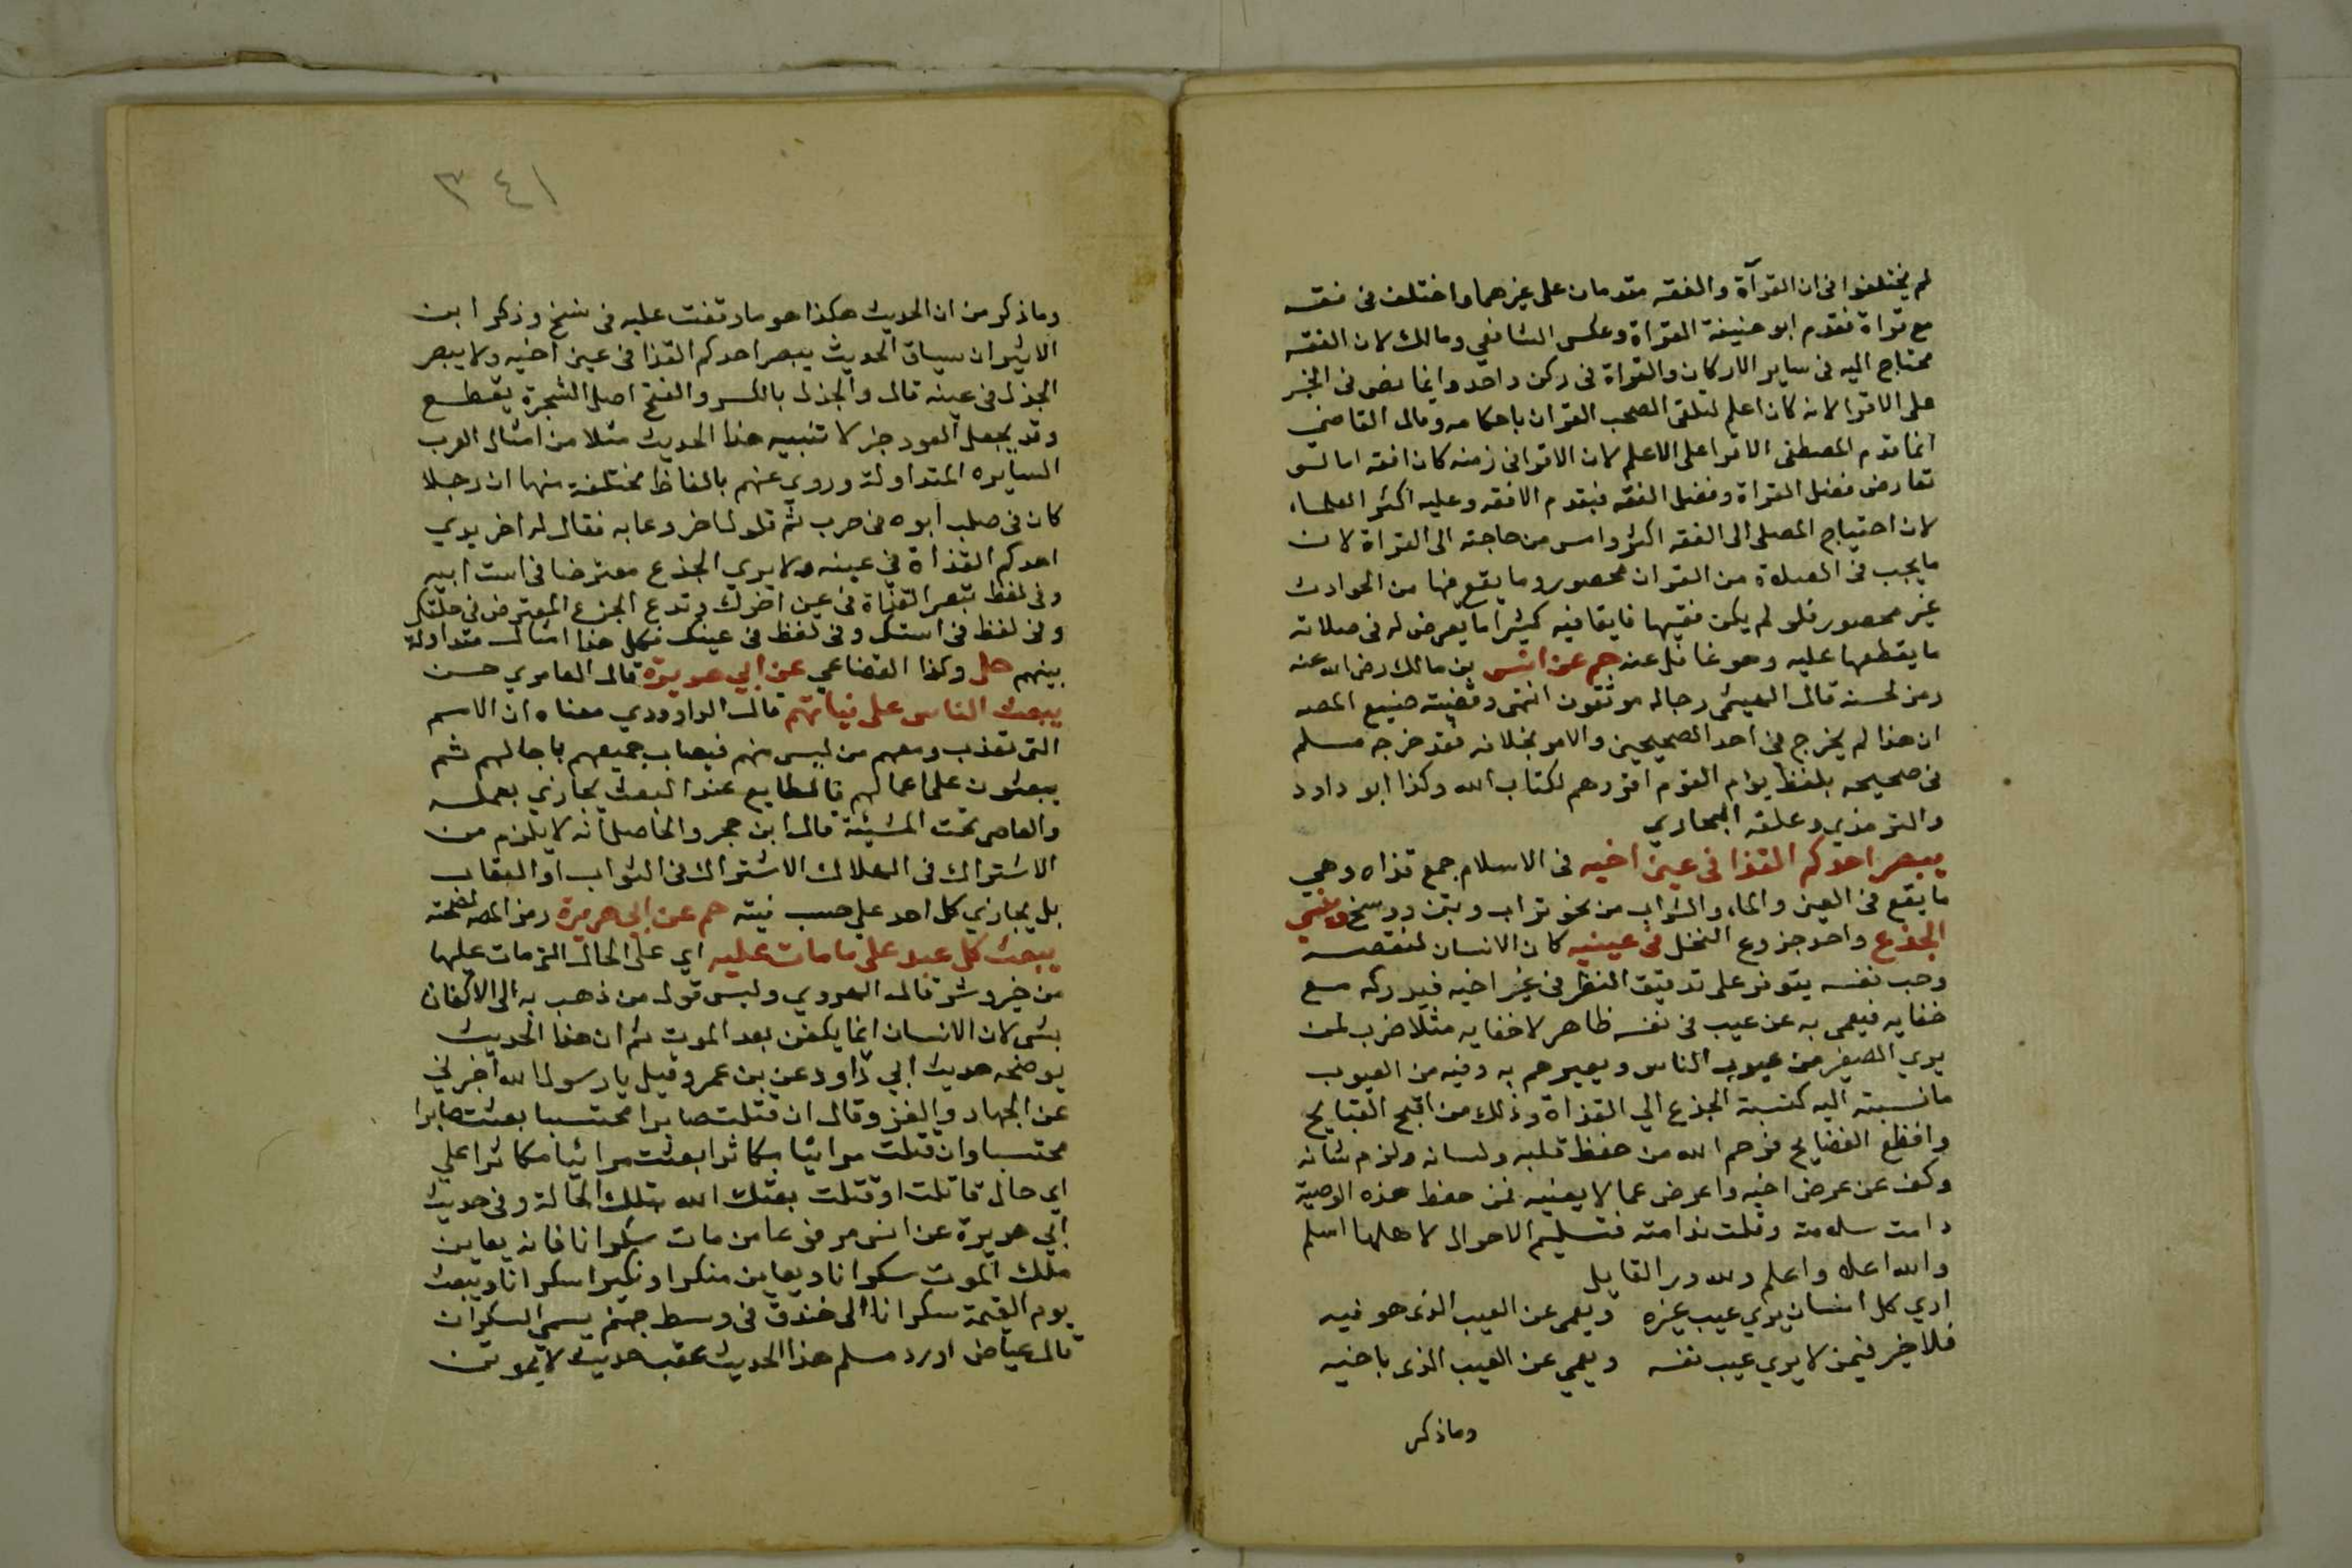 لم يختلفوا في ان القرآة والفقه مقدمان على غيرهما واختلف في فقه
مع قراة فقدم ابو حنيفة القراة وعكس الشافعي ومالك لان الفقه
محتاج اليه في ساير الاركان والقراة في ركن واحد وانما نص في الخبر
على الاقرا لانه كان اعلم لتلقي الصحب القران باحكامه وقال القاضي
انما قدم المصطفى الاقرا على الاعلم لان الاقرا في زمنه كان افقه اما لو
تعارض فضل القراة وفضل الفقه فيقدم الافقه وعليه اكثر العلماء
لان احتياج المصلي الى الفقه اكثر وامس من حاجته الى القراة لان
ما يجب في الصلاة من القران محصور وما يقع فيها من الحوادث
غير محصور فلو لم يكن فقيها فايقا فيه كثيرا ما يعرض له في صلاته
ما يقطعها عليه وهو غافل عنه حم عن انس بن مالك رضي الله عنه
رمز لحسنه قال الهيثمي رجاله موثقون انتهى وقضيته صنيع المصه
ان هذا لم يخرج في احد الصحيحين والامر بخلافه فقد خرجه مسلم
في صحيحه بلفظ يوام القوم اقروهم لكتاب الله وكذا ابو داود
والترمذي وعلقه البخاري
يبصر احدكم القذا في عين اخيه في الاسلام جمع قذاه وهي
ما يقع في العين والماء والشراب من نحو تراب وتبن ووسخ وينسى
الجذع واحد جزوع النخل في عينيه كان الانسان لنقصه
وحب نفسه يتوفر على تدقيق النظر في غير اخيه فيدركه مع
خفايه فيعمى به عن عيب في نفسه ظاهر لا خفا به مثلا ضرب لمن
يري الصغير من عيوب الناس ويعيرهم به وفيه من العيوب
ما نسبته اليه كنسبة الجذع الي القذاة وذلك من اقبح القبايح
وافظع الفضايح فرحم الله من حفظ قلبه ولسانه ولزم شانه
وكف عن عرض اخيه واعرض عما لا يعنيه فمن حفظ هذه الوصية
دامت سلامته وقلت ندامته فتسليم الاحوال لاهلها اسلم
والله اعلا واعلم ولله در القايل
اري كل انسان يري عيب غيره ويعمى عن العيب الذى هو فيه
فلا خير فيمن لا يري عيب نفسه ويعمي عن العيب الذى باخيه
وماذكر
٣٤١
وماذكر من ان الحديث هكذا هو ما وقفت عليه في نسخ وذكر ابن
الاثير ان سياق الحديث يبصر احدكم القذا في عين اخيه ولا يبصر
الجذل في عينه قال والجذل بالكسر والفتح اصل الشجرة يقطع
وقد يجعل العود جزلا تنبيه هذا الحديث مثلا من امثال العرب
السايره المتداولة وروي عنهم بالفاظ مختلفة منها ان رجلا
كان في صلب ابوه في حرب ثم قاول اخر وعابه فقال له اخر يري
احدكم القذاة في عينه ولا يري الجذع معترضا في است ابيه
وفي لفظ تبصر القذاة في عين اخوك وتدع الجزع المعترض في حلقك
وفي لفظ في استك وفي لفظ في عينك فكل هذا امثال متداولة
بينهم حل وكذا القضاعي عن ابي هريرة قال العامري حسن
يبعث الناس على نياتهم قال الداوودي معناه ان الامم
التي تعذب ومعهم من ليس منهم فيصاب جميعهم باجالهم ثم
يبعثون على اعمالهم فالطايع عند البعث يجازي بعمله
والعاصى تحت المشيئة قال ابن حجر والحاصل انه لا يلزم من
الاشتراك في الهلاك الاشتراك في الثواب او العقاب
بل يجازي كل احد على حسب نيته حم عن ابي هريرة رمز المصه لصحته
يبعث كل عبد على ما مات عليه اي على الحال التي مات عليها
من خير وشر قال الهروي وليس قول من ذهب به الى الاكفان
بشي لان الانسان انما يكفن بعد الموت ثم ان هذا الحديث
يوضحه حديث ابي داود عن بن عمرو قيل يا رسول الله اخبرني
عن الجهاد والغزو قال ان قتلت صابرا محتسبا بعثت صابرا
محتسبا وان قتلت مرائيا مكاثرا بعثت مرائيا مكاثرا علي
اي حال قاتلت او قتلت بعثك الله بتلك الحالة وفي حديث
ابي هريرة عن انس مرفوعا من مات سكرانا فانه يعاين
ملك الموت سكرانا ويعاين منكرا ونكيرا سكرانا ويبعث
يوم القيمة سكرانا الى خندق في وسط جهنم يسمى السكران
قال عياض اورد مسلم هذا الحديث عقب حديث لا يموتن